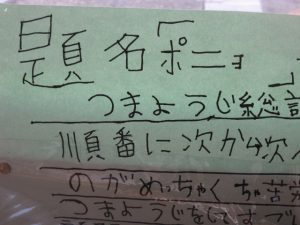 題名「ポニョ」
つまようじ総計
順番に次から次へ
のがめっちゃくちゃ苦労
つまようじを